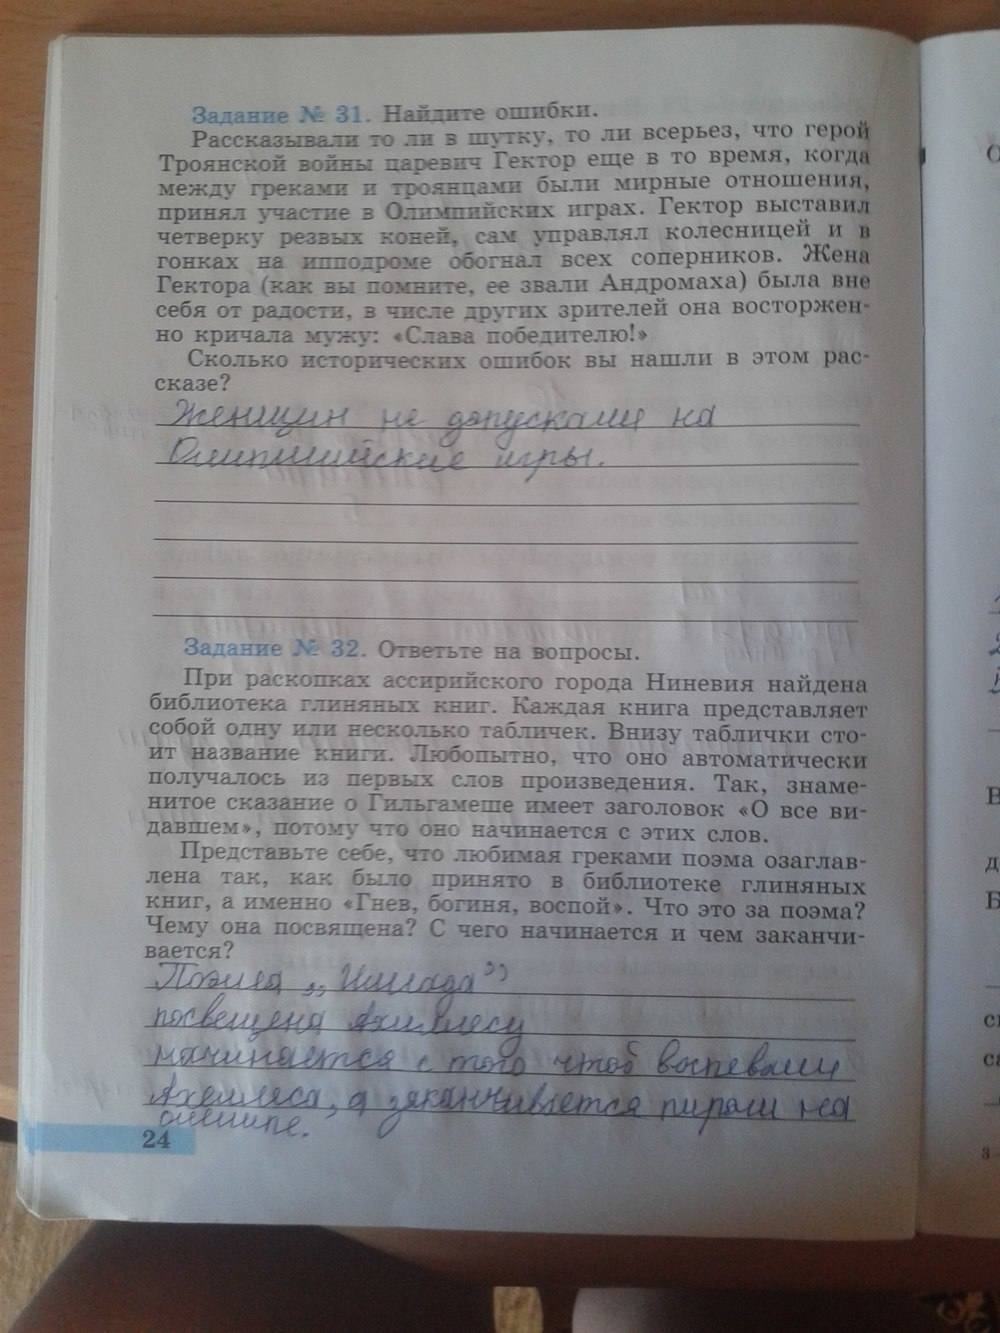 Задание № 31. Найдите ошибки.
Рассказывали то ли в шутку, то ли всерьез, что герой
Троянской войны царевич Гектор еще в то время, когда
между греками и троянцами были мирные отношения,
принял участие в Олимпийских играх. Гектор выставил
четверку резвых коней, сам управлял колесницей и в
гонках на ипподроме обогнал всех соперников. Жена
Гектора (как вы помните, ее звали Андромаха) была вне
себя от радости, в числе других зрителей она восторжен-
но кричала мужу: «Слава победителю!»
Сколько исторических ошибок вы нашли в этом рас-
сказе?
Женщин не допускали на
Олимпийские игры.
Задание № 32. Ответьте на вопросы.
При раскопках ассирийского города Ниневия найдена
библиотека глиняных книг. Каждая книга представляет
собой одну или несколько табличек. Внизу таблички сто-
ит название книги. Любопытно, что оно автоматически
получалось из первых слов произведения. Так, знаме-
нитое сказание о Гильгамеше имеет заголовок «О все ви-
давшем», потому что оно начинается с этих слов.
Представьте себе, что любимая греками поэма озаглав-
лена так, как было принято в библиотеке глиняных
книг, а именно «Гнев, богиня, воспой». Что это за поэма?
Чему она посвящена? С чего начинается и чем заканчи-
вается?
Поэма „Иллиада”
посвещена Ахиллесу
начинается с того чтоб воспевали
Ахеллеса, а заканчивается пиром на
олимпе.
24
О
В
д
Б
с
са
3